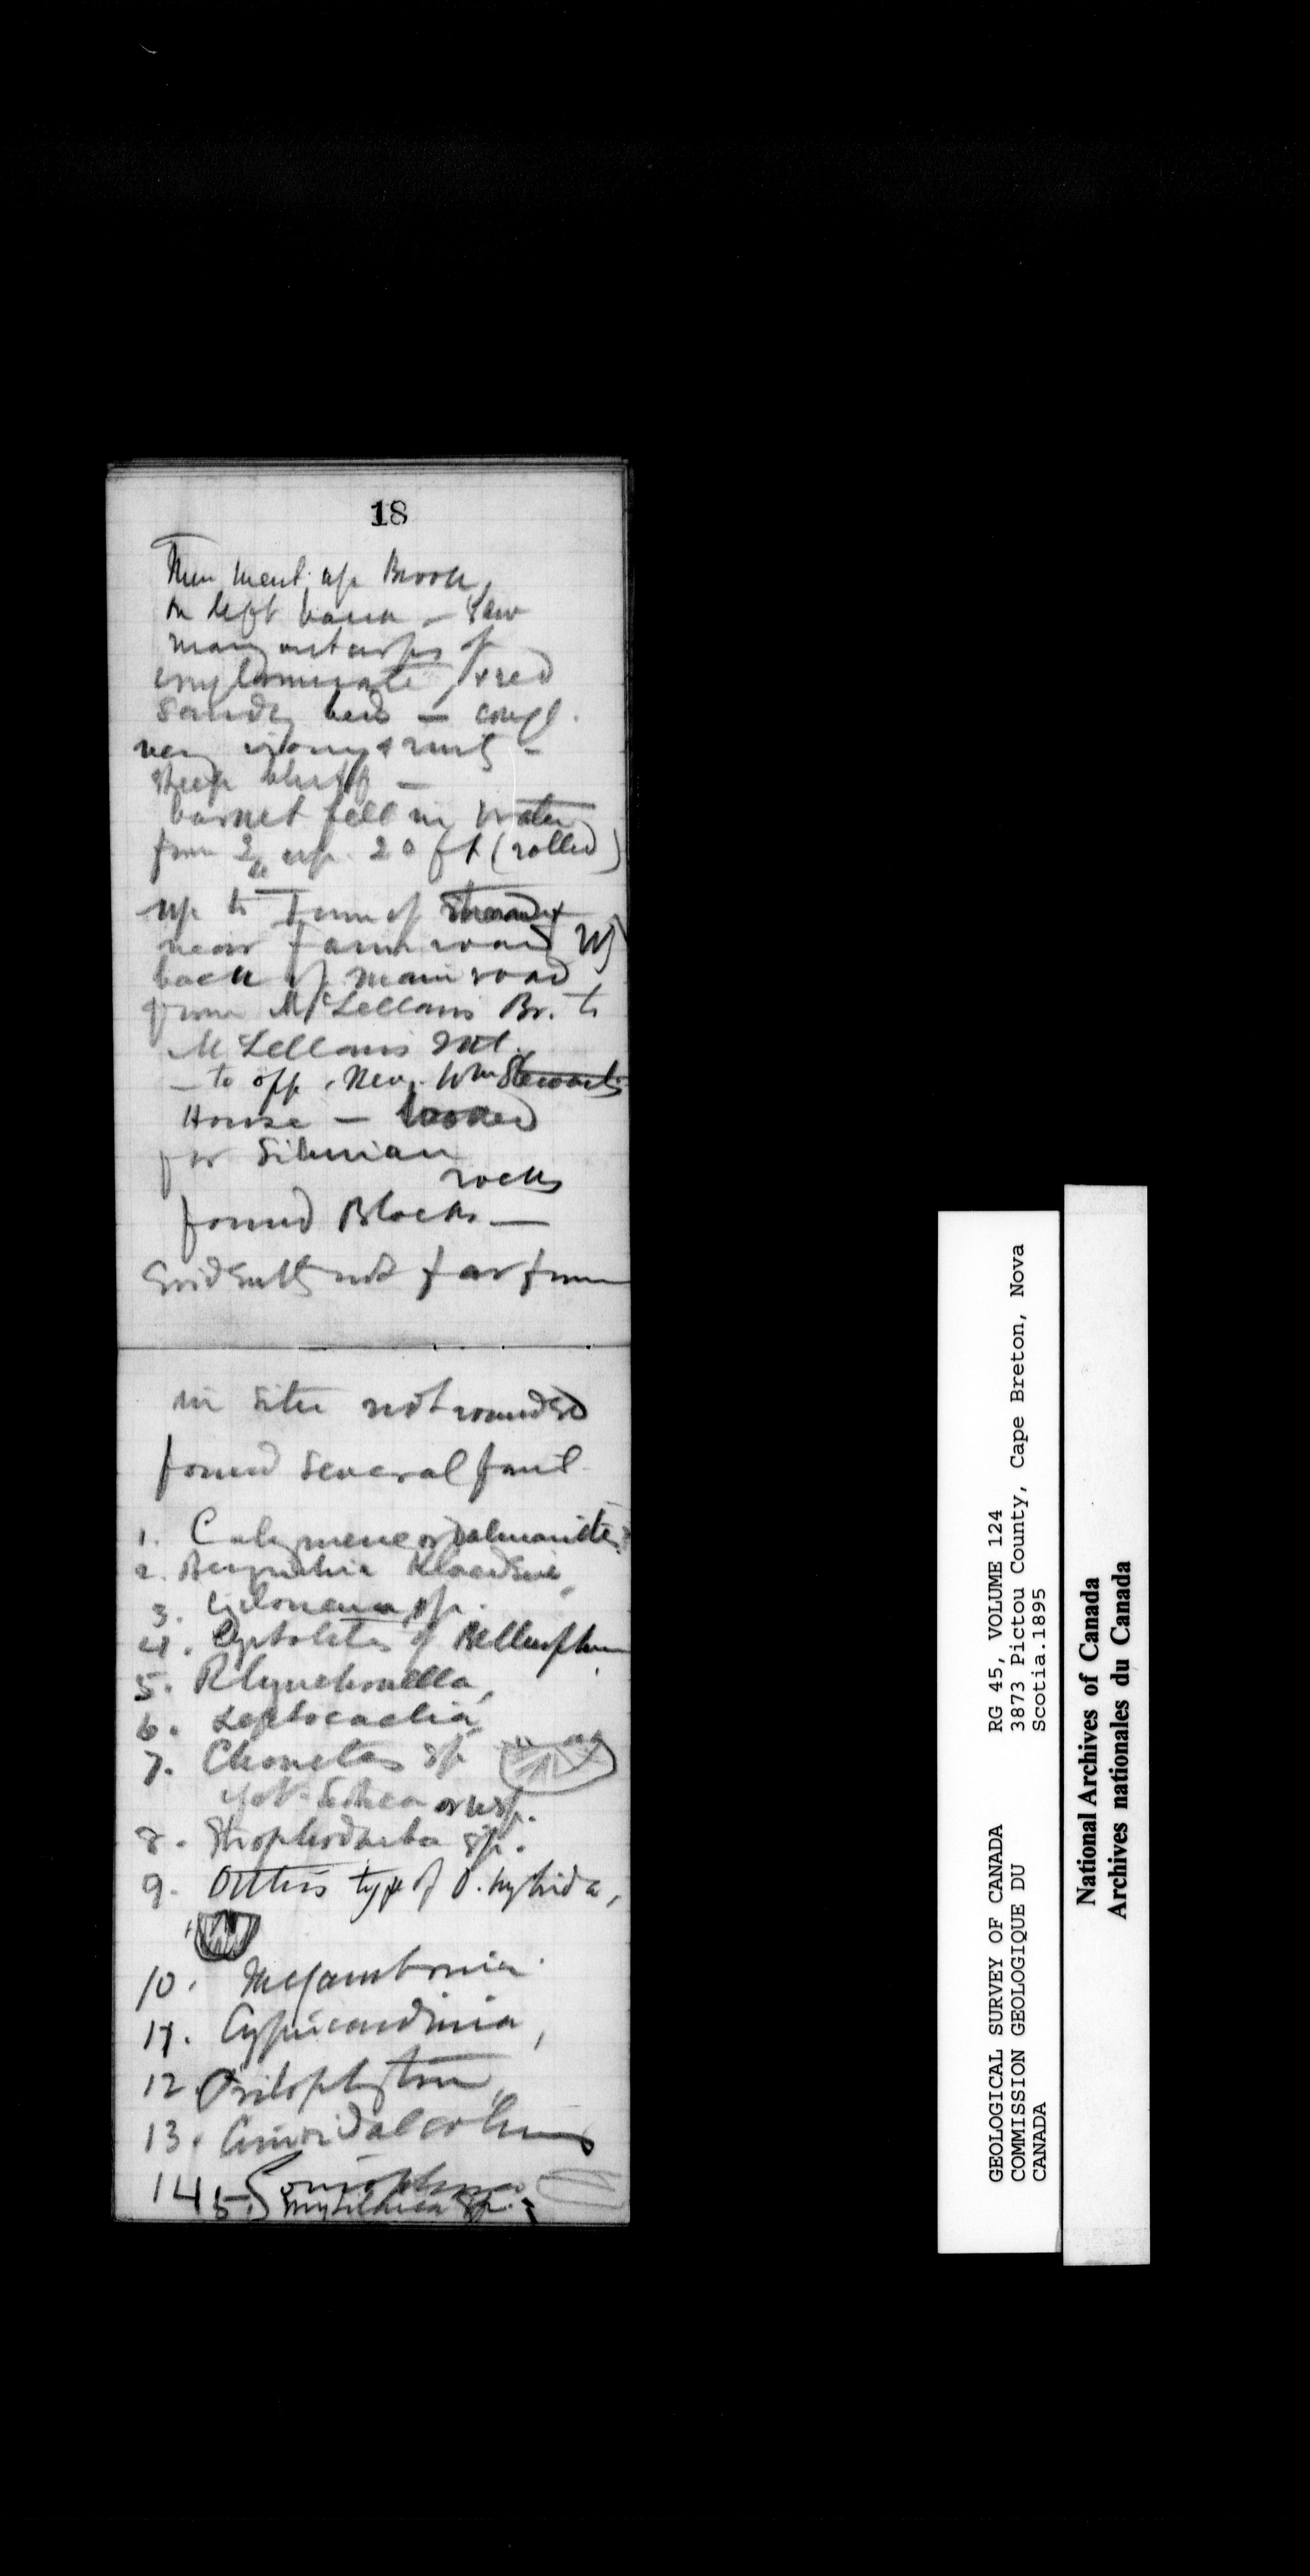 18
Then went up Brook
on left bank - Saw
many outcrops of
conglomerate, & red
Sandy beds - congl.
very irony &
steep bluff -
fell in water
from up 20 ft (rolled)
up to Turn of
near farm road
back of main road
from McLellans Br. to
McLellans Mt.
- to opp. Rev. Wm Stewarts
House - looked
for Silurian
rocks
found Blocks -
Evidently not far from
in situ not rounded
found several
1. Calymene or Dalmanites?
2. Beyrichia Kloedeni,
3. Cyclonema sp.
4. Cyrtolites of Bellerophon
5. Rhynchonella,
6. Leptocoelia,
7. Chonetes sp.
8. Strophodonta sp.
9. Orthis type of O. hybrida,
10. Megambonia.
11. Cypricardinia,
12. Psilophyton,
13. Crinoidal columns
14. Goniophora
5. sp.
GEOLOGICAL SURVEY OF CANADA
COMMISSION GEOLOGIQUE DU
CANADA
RG 45, VOLUME 124
3873 Pictou County, Cape Breton, Nova
Scotia.1895
National Archives of Canada
Archives nationales du Canada